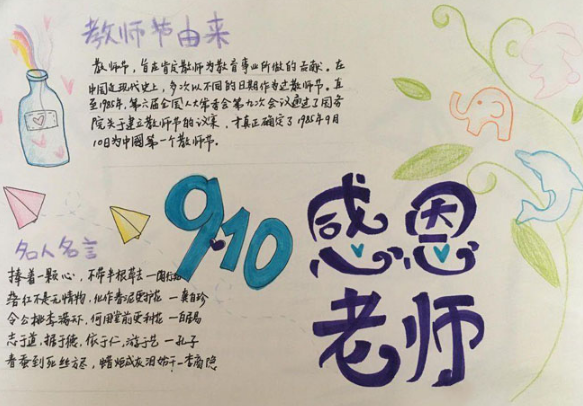 教师节由来
教师节，旨在肯定教师为教育事业所做的贡献。在
中国近现代史上，多次以不同的日期作为过教师节。直
至1985年，第六届全国人大常委会第九次会议通过了国务
院关于建立教师节的议案，才真正确定了1985年9月
10日为中国第一个教师节。
9.10
感恩
老师
名人名言
捧着一颗心，不带半根草去 —陶行知
落红不是无情物，化作春泥更护花 —龚自珍
令公桃李满天下，何用堂前更种花 —白居易
志于道，据于德，依于仁，游于艺 —孔子
春蚕到死丝方尽，蜡炬成灰泪始干 —李商隐